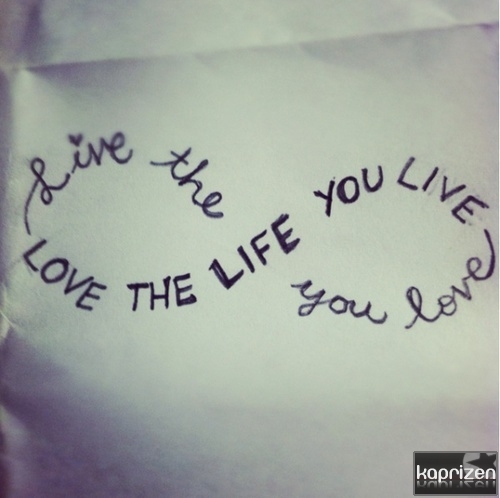 Live the
LOVE THE LIFE YOU LIVE
you love
kaprizen